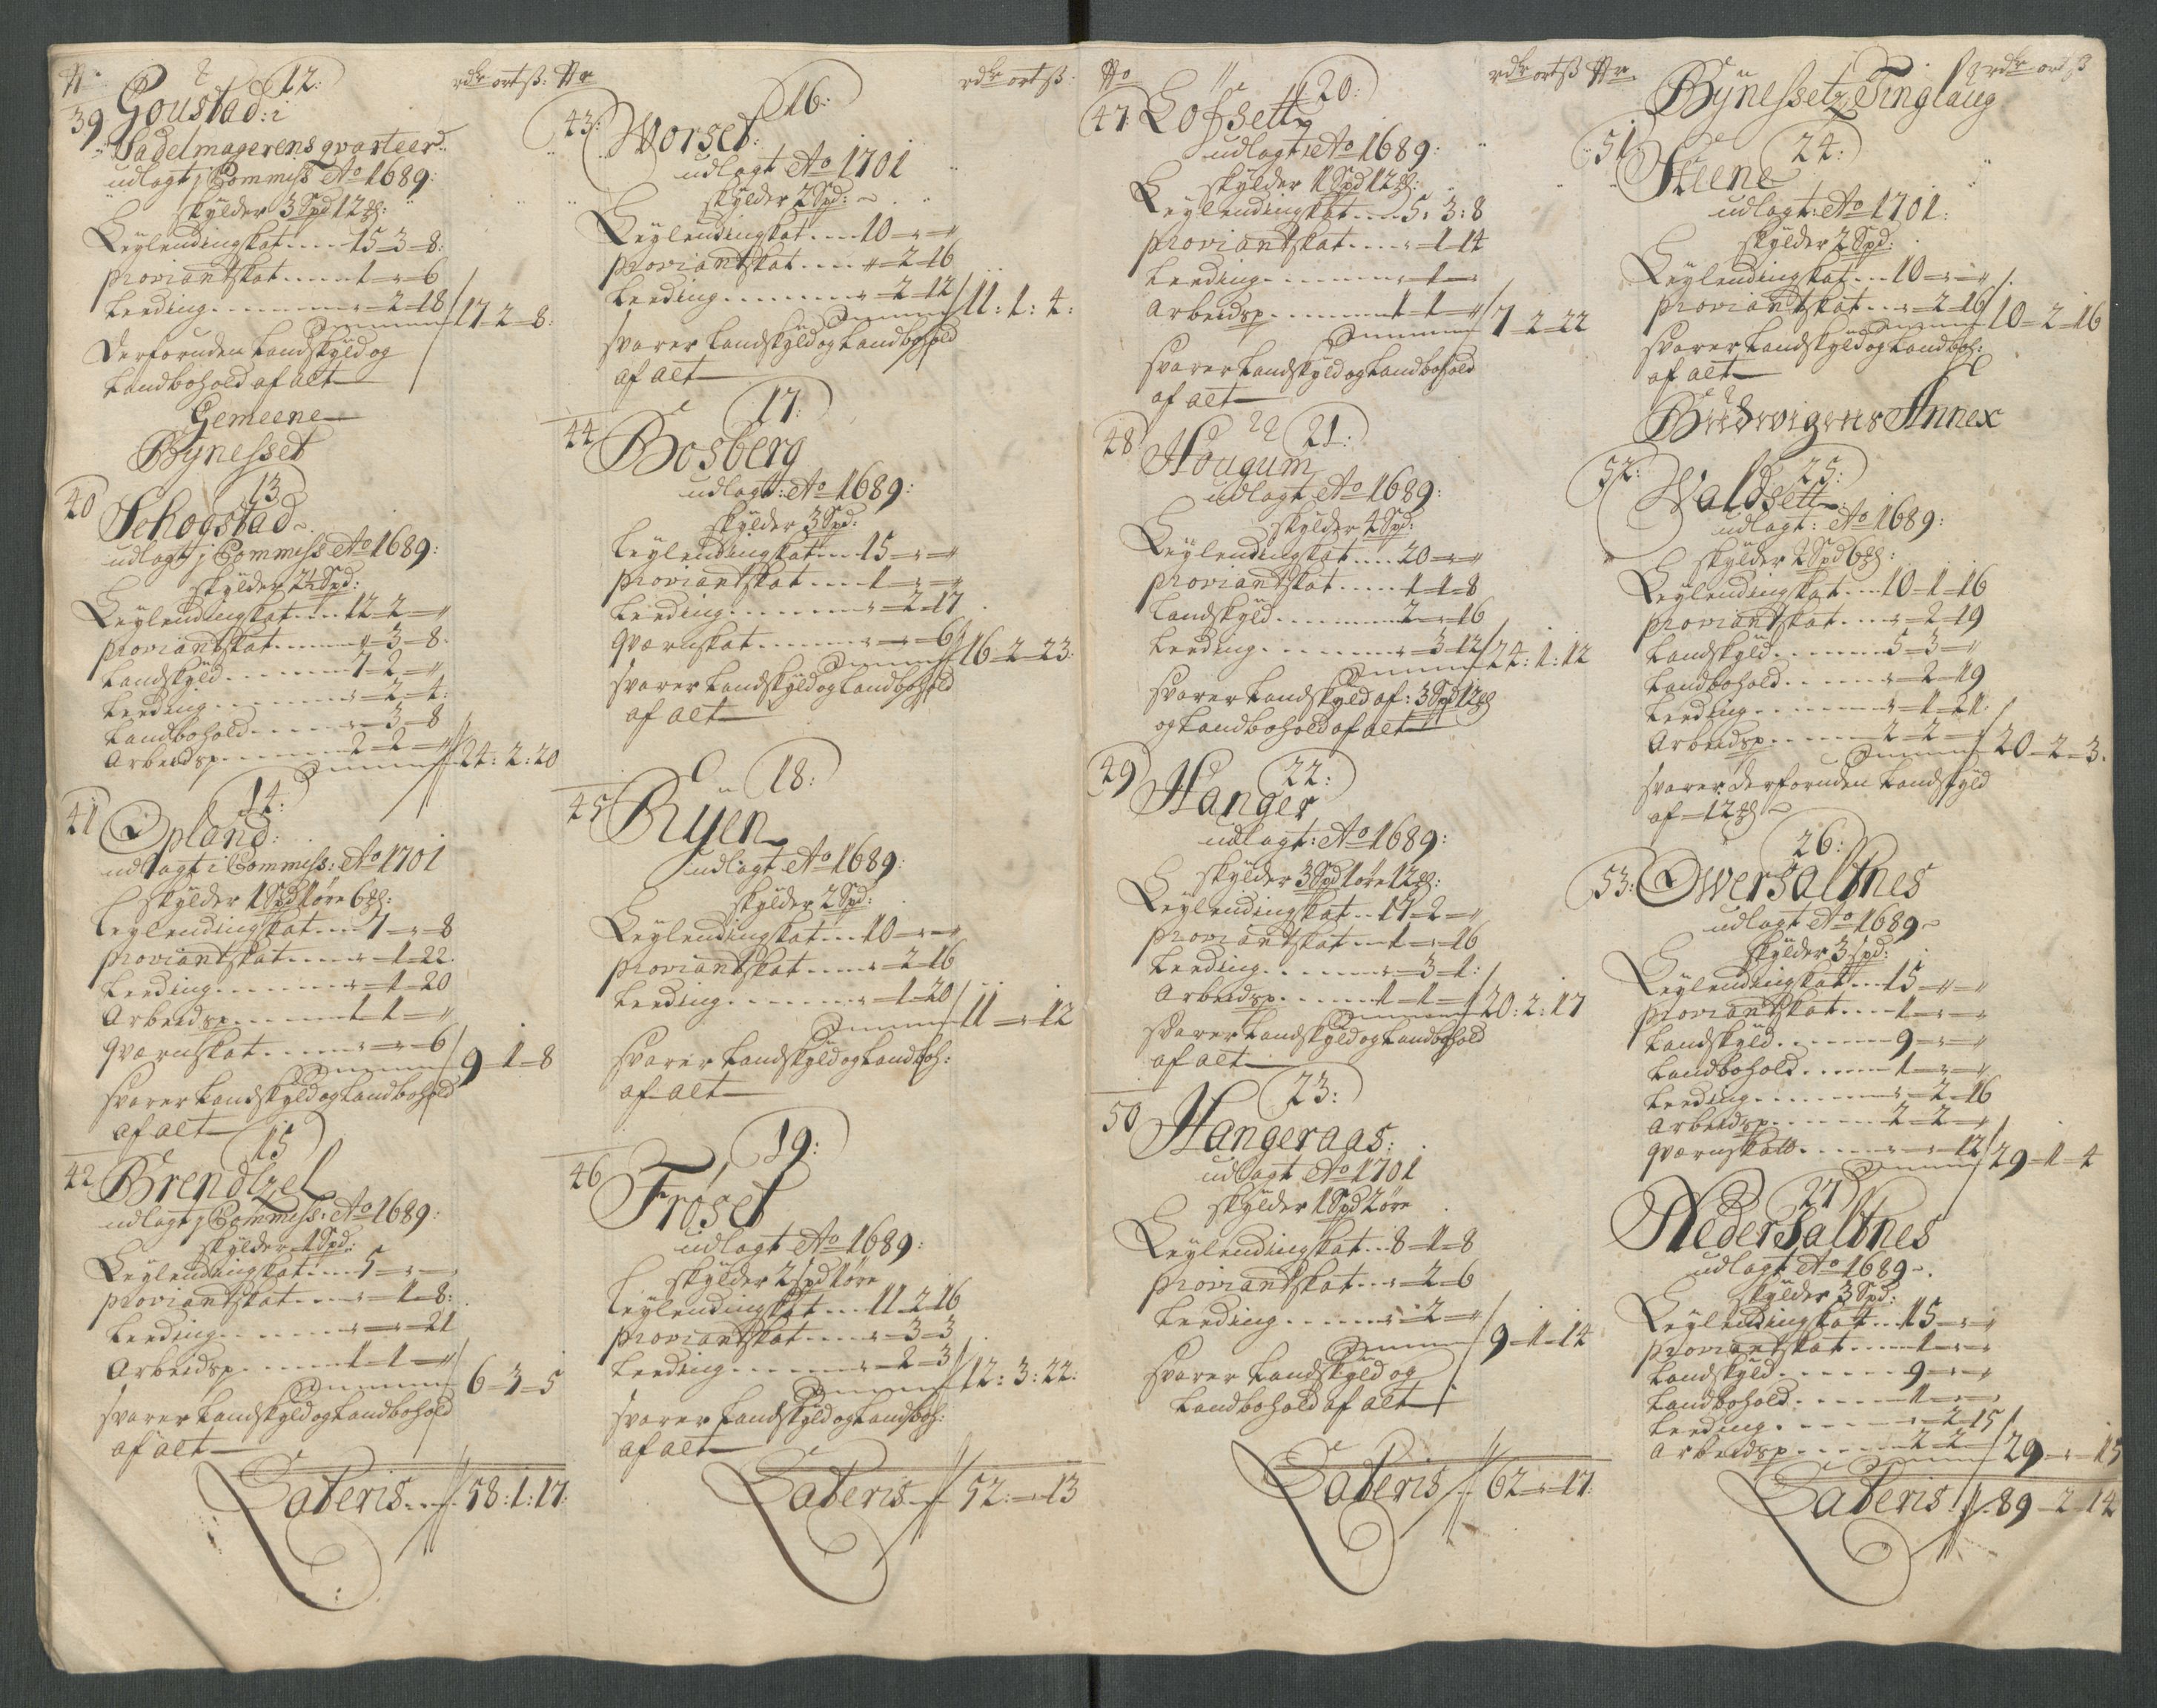 No 12: rdr ort ß:
39 Goustad: i
Sadelmagerens qvarteer
udlagt j Commiss Ao 1689:
skÿlder 3 Spd 12 ℔:
Leÿlendingskat .... 15-3-8:
proviantskat ..... 1-"-6
Leeding ....... "-2-18
Summa 17-2-8:
Derforuden Landskÿld og
Landbohold af alt
Gemeene
Bÿnesset
13
40 Schogstad
udlagt j Commiss Ao 1689:
skÿlder 2½ Spd:
Leÿlendingskat .... 12-2-"
proviantskat ..... "-3-8
Landskÿld ....... 7-2-"
Leeding ....... "-2-4:
Landbohold ..... "-3-8
Arbeidsp ...... 2-2-"
Summa 24:2:20
14:
41 Opland:
udlagt i Commiss: Ao 1701
skÿlder 1 Spd 1 øre 6 ℔:
Leÿlendingskat .... 7-"-8
proviantskat .... "-1-22
Leeding ....... "-1-20
Arbeidsp ...... 1-1-"
Qværnskat ...... "-"-6
Summa 9-1-8
svarer Landskÿld og Landbohold
af alt
15
42 Brendtzel
udlagt j Commiss: Ao 1689:
skÿlder 1 Spd:
Leÿlendingskat .... 5-"-"
proviantskat .... "-1-8:
Leeding ....... "-"-21
Arbeidsp ...... 1-1-"
Summa 6-3-5
svarer Landskÿld og Landbohold
af alt
Lateris .... 58:1:17:
Nr 16: rdr ort ß:
43: Worset:
udlagt Ao 1701
skÿlder 2 Spd:
Leÿlendingskat .... 10-"-"
proviantskat .... "-2-16
Leeding ....... "-2-12
Summa 11:1:4:
svarer Landskÿld og Landbohold
af alt
17:
44 Bosberg
udlagt: Ao 1689:
skÿlder 3 Spd:
Leÿlendingskat .... 15-"-"
proviantskat .... 1-"-"
Leeding ....... "-2-17
Qværnskat ...... "-"-6
Summa 16-2-23:
svarer Landskÿld og Landbohold
af alt
18:
45 Rÿen
udlagt Ao 1689:
skÿlder 2 Spd:
Leÿlendingskat ... 10-"-"
proviantskat .... "-2-16
Leeding ....... "-1-20
Summa 11-"-12
svarer Landskÿld og Landboh:
af alt
19:
46 Frøset
udlagt Ao 1689:
skÿlder 2 spd 1 øre
Leÿlendingskat ... 11-2-16
proviantskat .... "-3-3
Leeding ....... "-2-3
Summa 12:3:22:
svarer Landskÿld og Landboh:
af alt
Lateris 52:"-13
No 20: rdr ort ß
47: Lofsett
udlagt: Ao 1689:
skÿlder 1 Spd 12 ℔:
Leÿlendingskat .... 5:3:8
proviantskat .... "-1-14
Leeding ....... "-1-"
Arbeidsp ...... 1-1-"
Summa 7-2-22
svarer Landskÿld og Landbohold
af alt
21:
48 Hougum
udlagt Ao 1689:
skÿlder 4 Spd:
Leÿlendingskat .... 20-"-"
proviantskat .... 1-1-8
Landskÿld ....... 2-"-16
Leeding ....... "-3-12
Summa 24:1:12
svarer Landskÿld af: 3 Spd 12 ℔
og Landbohold af alt
22:
49 Hanger
udlagt: Ao 1689:
skÿlder 3 Spd 1 øre 12 ℔:
Leÿlendingskat .. 17-2-"
proviantskat ... 1-"-16
Leeding ....... "-3-1:
Arbeidsp ...... 1-1-"
Summa 20:2:17
svarer Landskÿld og Landbohold
af alt
23:
50 Hangeraas:
udlagt Ao 1701
skÿlder 1 Spd 2 øre
Leÿlendingskat .. 8-1-8
proviantskat ... "-2-6
Leeding ...... "-2-"
Summa 9-1-14
svarer Landskÿld og
Landbohold af alt
Lateris 62-"-17:
Nr. rdr ort ß
Bÿnessetz Tinglaug
24:
51 Steene
udlagt: Ao 1701:
skÿlder 2 Spd:
Leÿlendingskat ... 10-"-"
proviantskat ... "-2-16
Summa 10-2-16
svarer Landskÿld og Landboh:
af alt
Budvigens Annex
25:
52: Waldsett
udlagt: Ao 1689:
skÿlder 2 Spd 6 ℔:
Leÿlendingskat ... 10-1-16
proviantskat .... "-2-19
Landskÿld ...... 5-3-"
Landbohold ..... "-2-19
Leeding ....... "-1-21
Arbeidsp ...... 2-2-"
Summa 20-2-3.
svarer derforuden Landskÿld
af 12 ℔
26:
53: Owersaltnes
udlagt Ao 1689
skÿlder 3 spd:
Leÿlendingskat ... 15-"-"
proviantskat .... 1-"-"
Landskÿld ...... 9-"-"
Landbohold ..... 1-"-"
Leeding ....... "-2-16
Arbeidsp ...... 2-2-"
Qværnskatt ..... "-"-12
Summa 29-1-4
27
Neder Saltnes
udlagt Ao 1689
skÿlder 3 Spd:
Leÿlendingskat .. 15-"-"
proviantskat .... 1-"-"
Landskÿld ...... 9-"-"
Landbohold ..... 1-"-"
Leeding ....... "-2-15
Arbeidsp ...... 2-2-"
29-"-15
Lateris 89-2-14